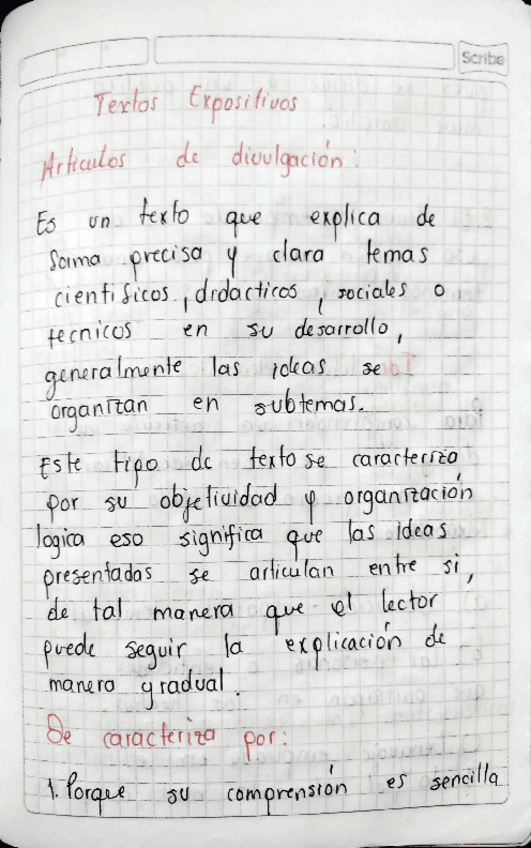 Scribe
Textos Expositivos
Articulos de divulgación:
Es un texto que explica de
forma precisa y clara temas
cientificos, didacticos, sociales o
tecnicos en su desarrollo,
generalmente las ideas se
organizan en subtemas.
Este tipo de texto se caracteriza
por su objetividad y organización
logica eso significa que las ideas
presentadas se articulan entre si,
de tal manera que el lector
puede seguir la explicación de
manera gradual.
Se caracteriza por:
1. Porque su comprensión es sencilla